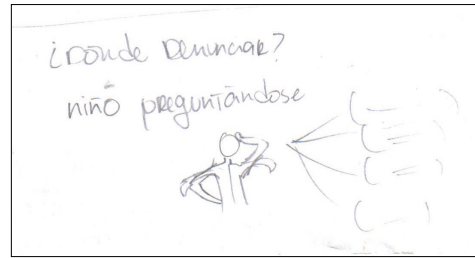 ¿Dónde Denunciar?
niño preguntándose